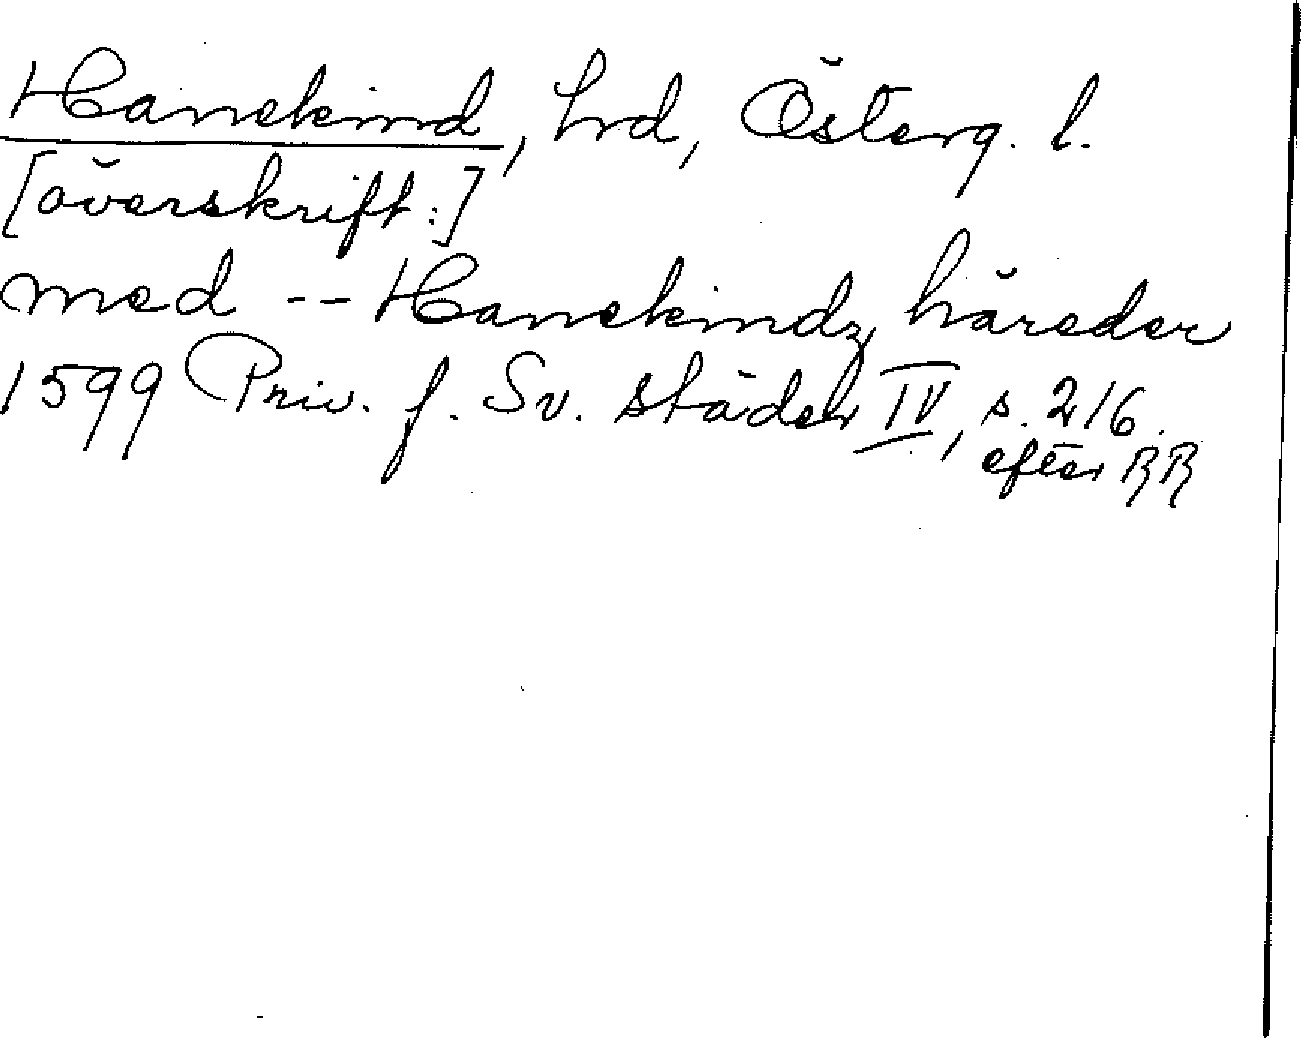 Hanekind, hrd, Österg. l.
[överskrift:]
med -- Hanekindz häreder
1599 Priv. f. Sv. städer IV, s. 216.
efter RR